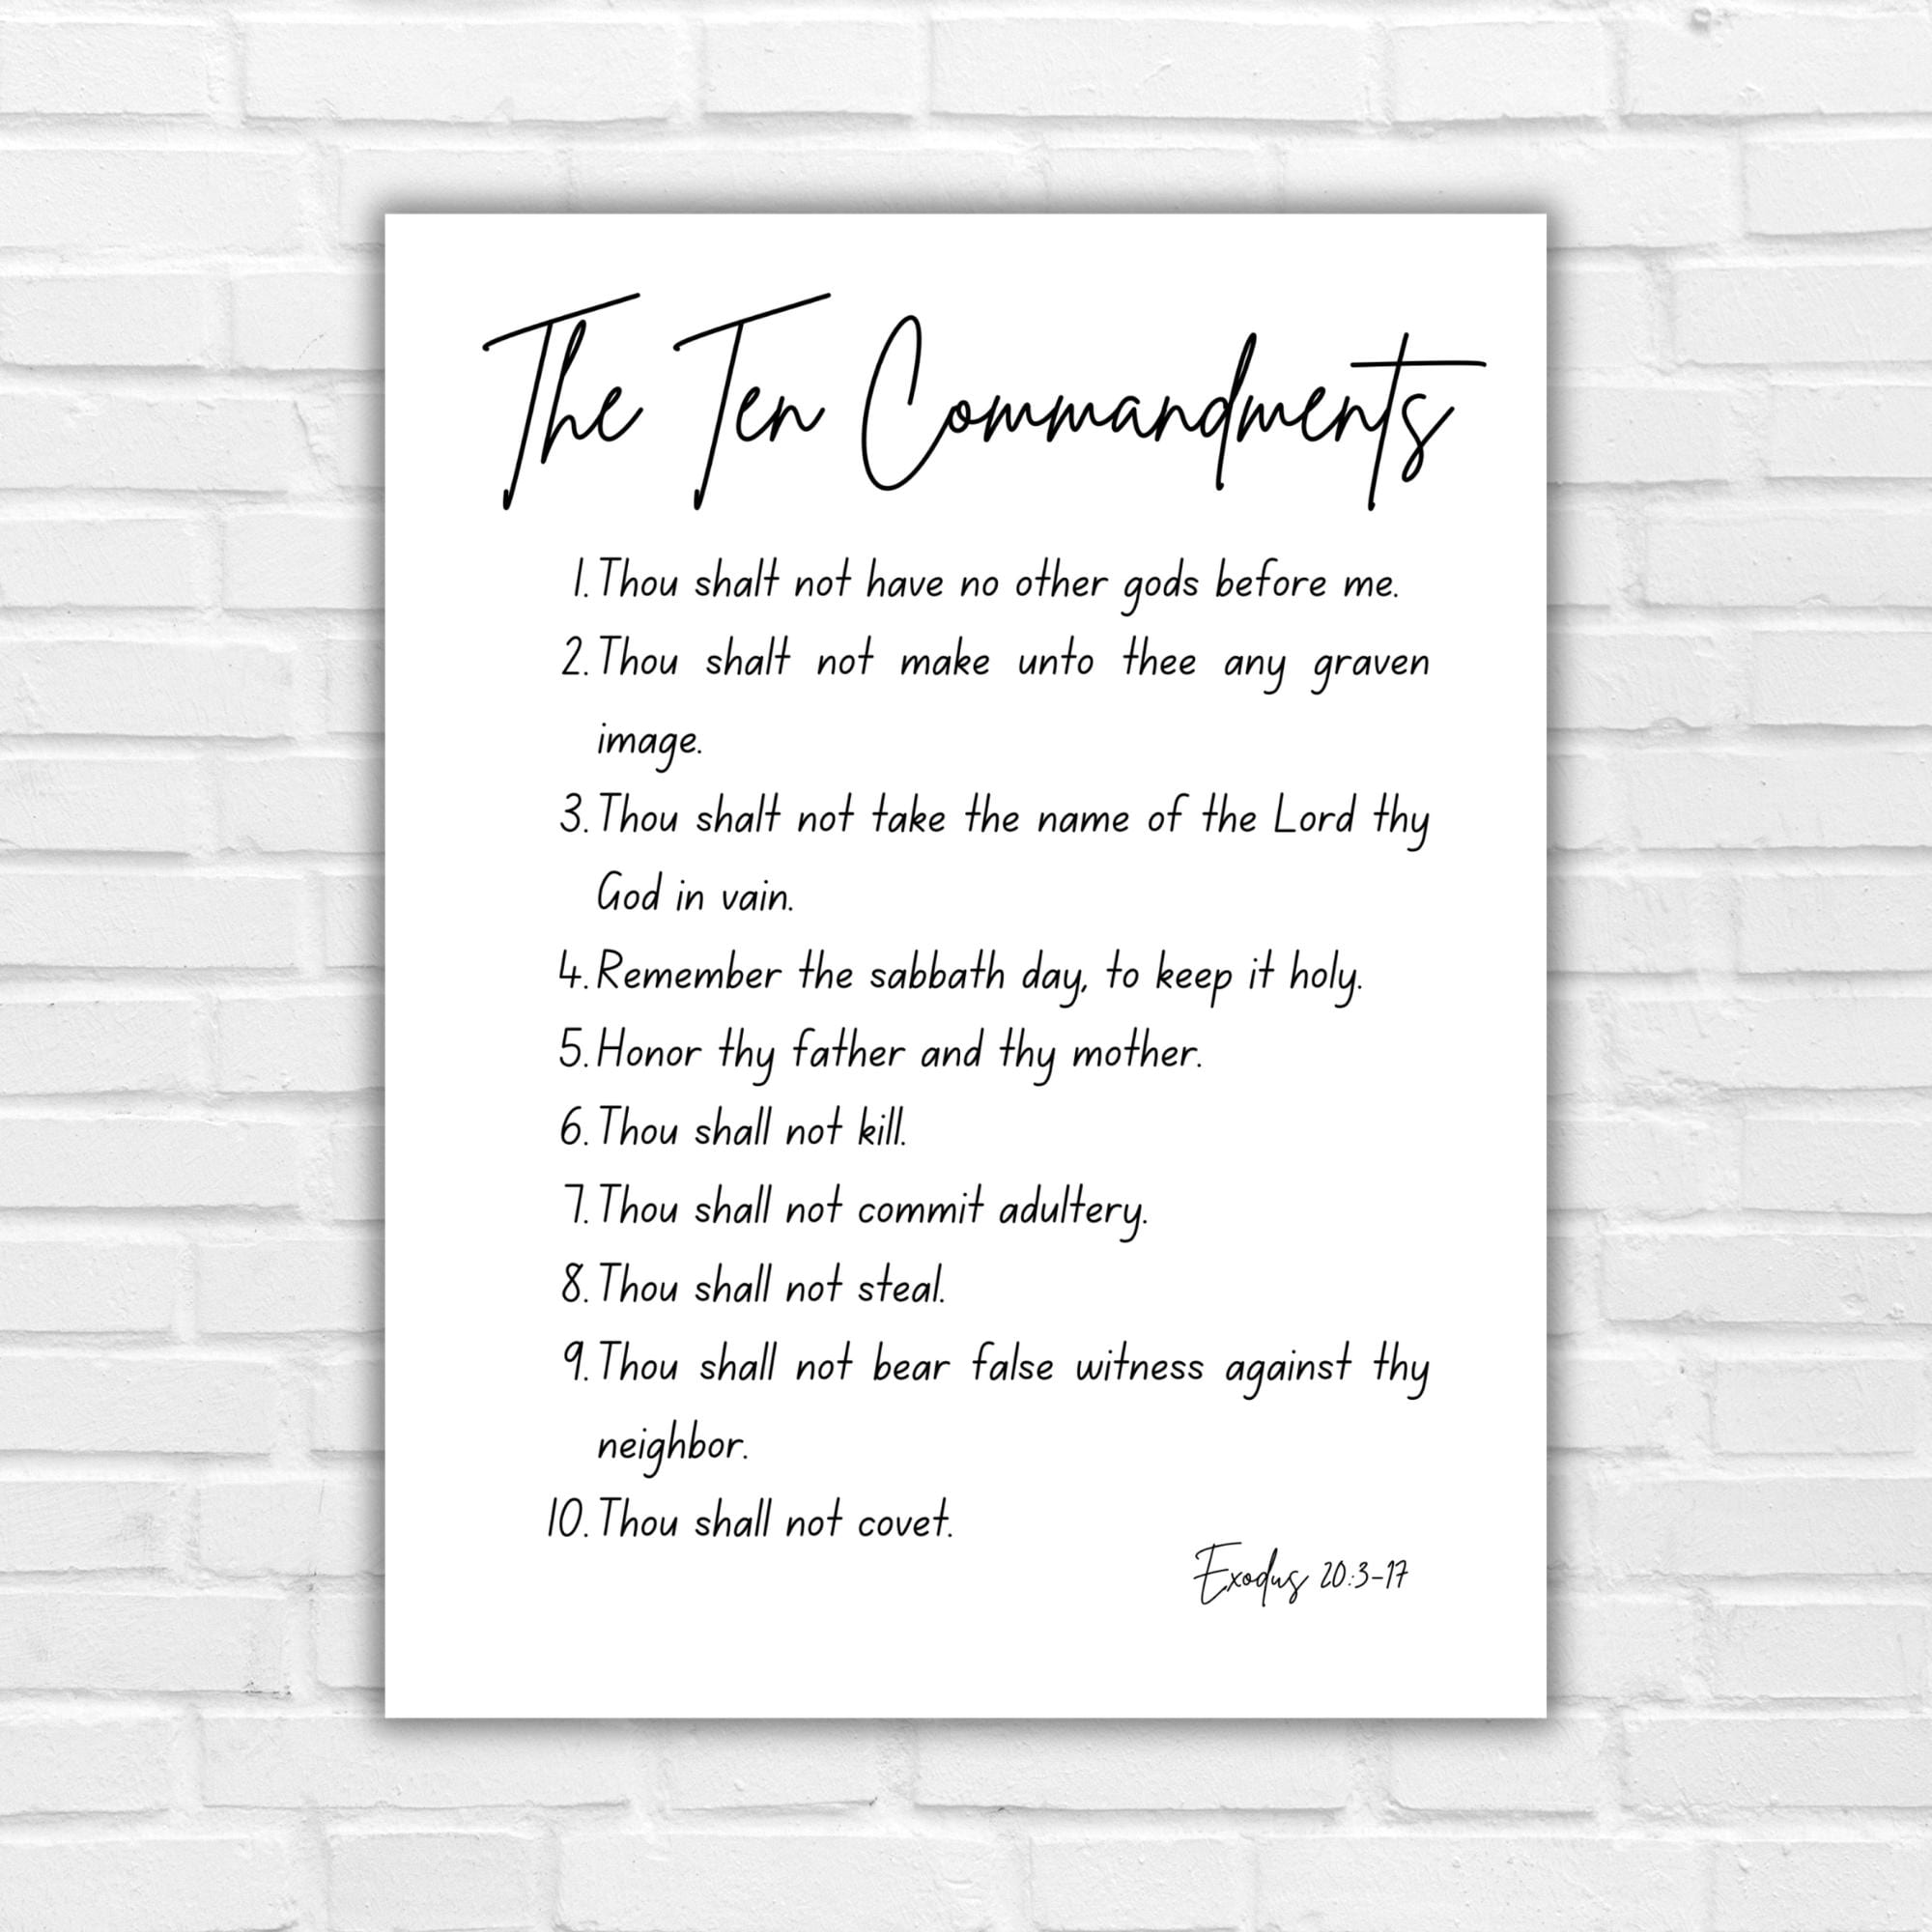 The Ten Commandments
1. Thou shalt not have no other gods before me.
2. Thou shalt not make unto thee any graven
image.
3. Thou shalt not take the name of the Lord thy
God in vain.
4. Remember the sabbath day, to keep it holy.
5. Honor thy father and thy mother.
6. Thou shall not kill.
7. Thou shall not commit adultery.
8. Thou shall not steal.
9. Thou shall not bear false witness against thy
neighbor.
10. Thou shall not covet.
Exodus 20:3-17